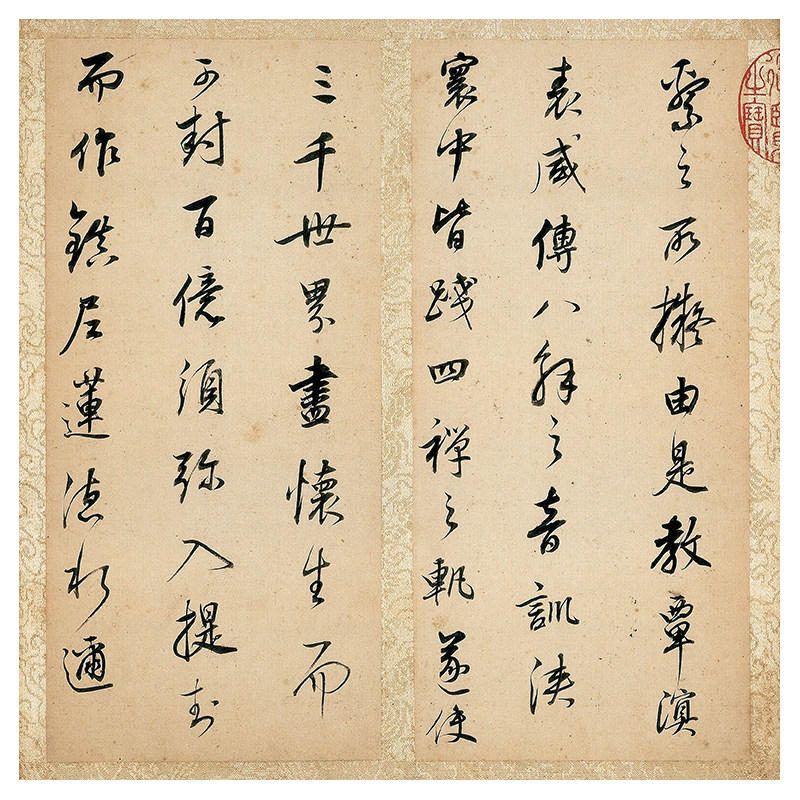 繫之所擬由是教覃溟
表咸傳八解之音訓浹
寰中皆踐四禪之軌遂使
三千世界盡懷生而
可封百億須彌入提封
而作鎮尼蓮德水邇
之寶